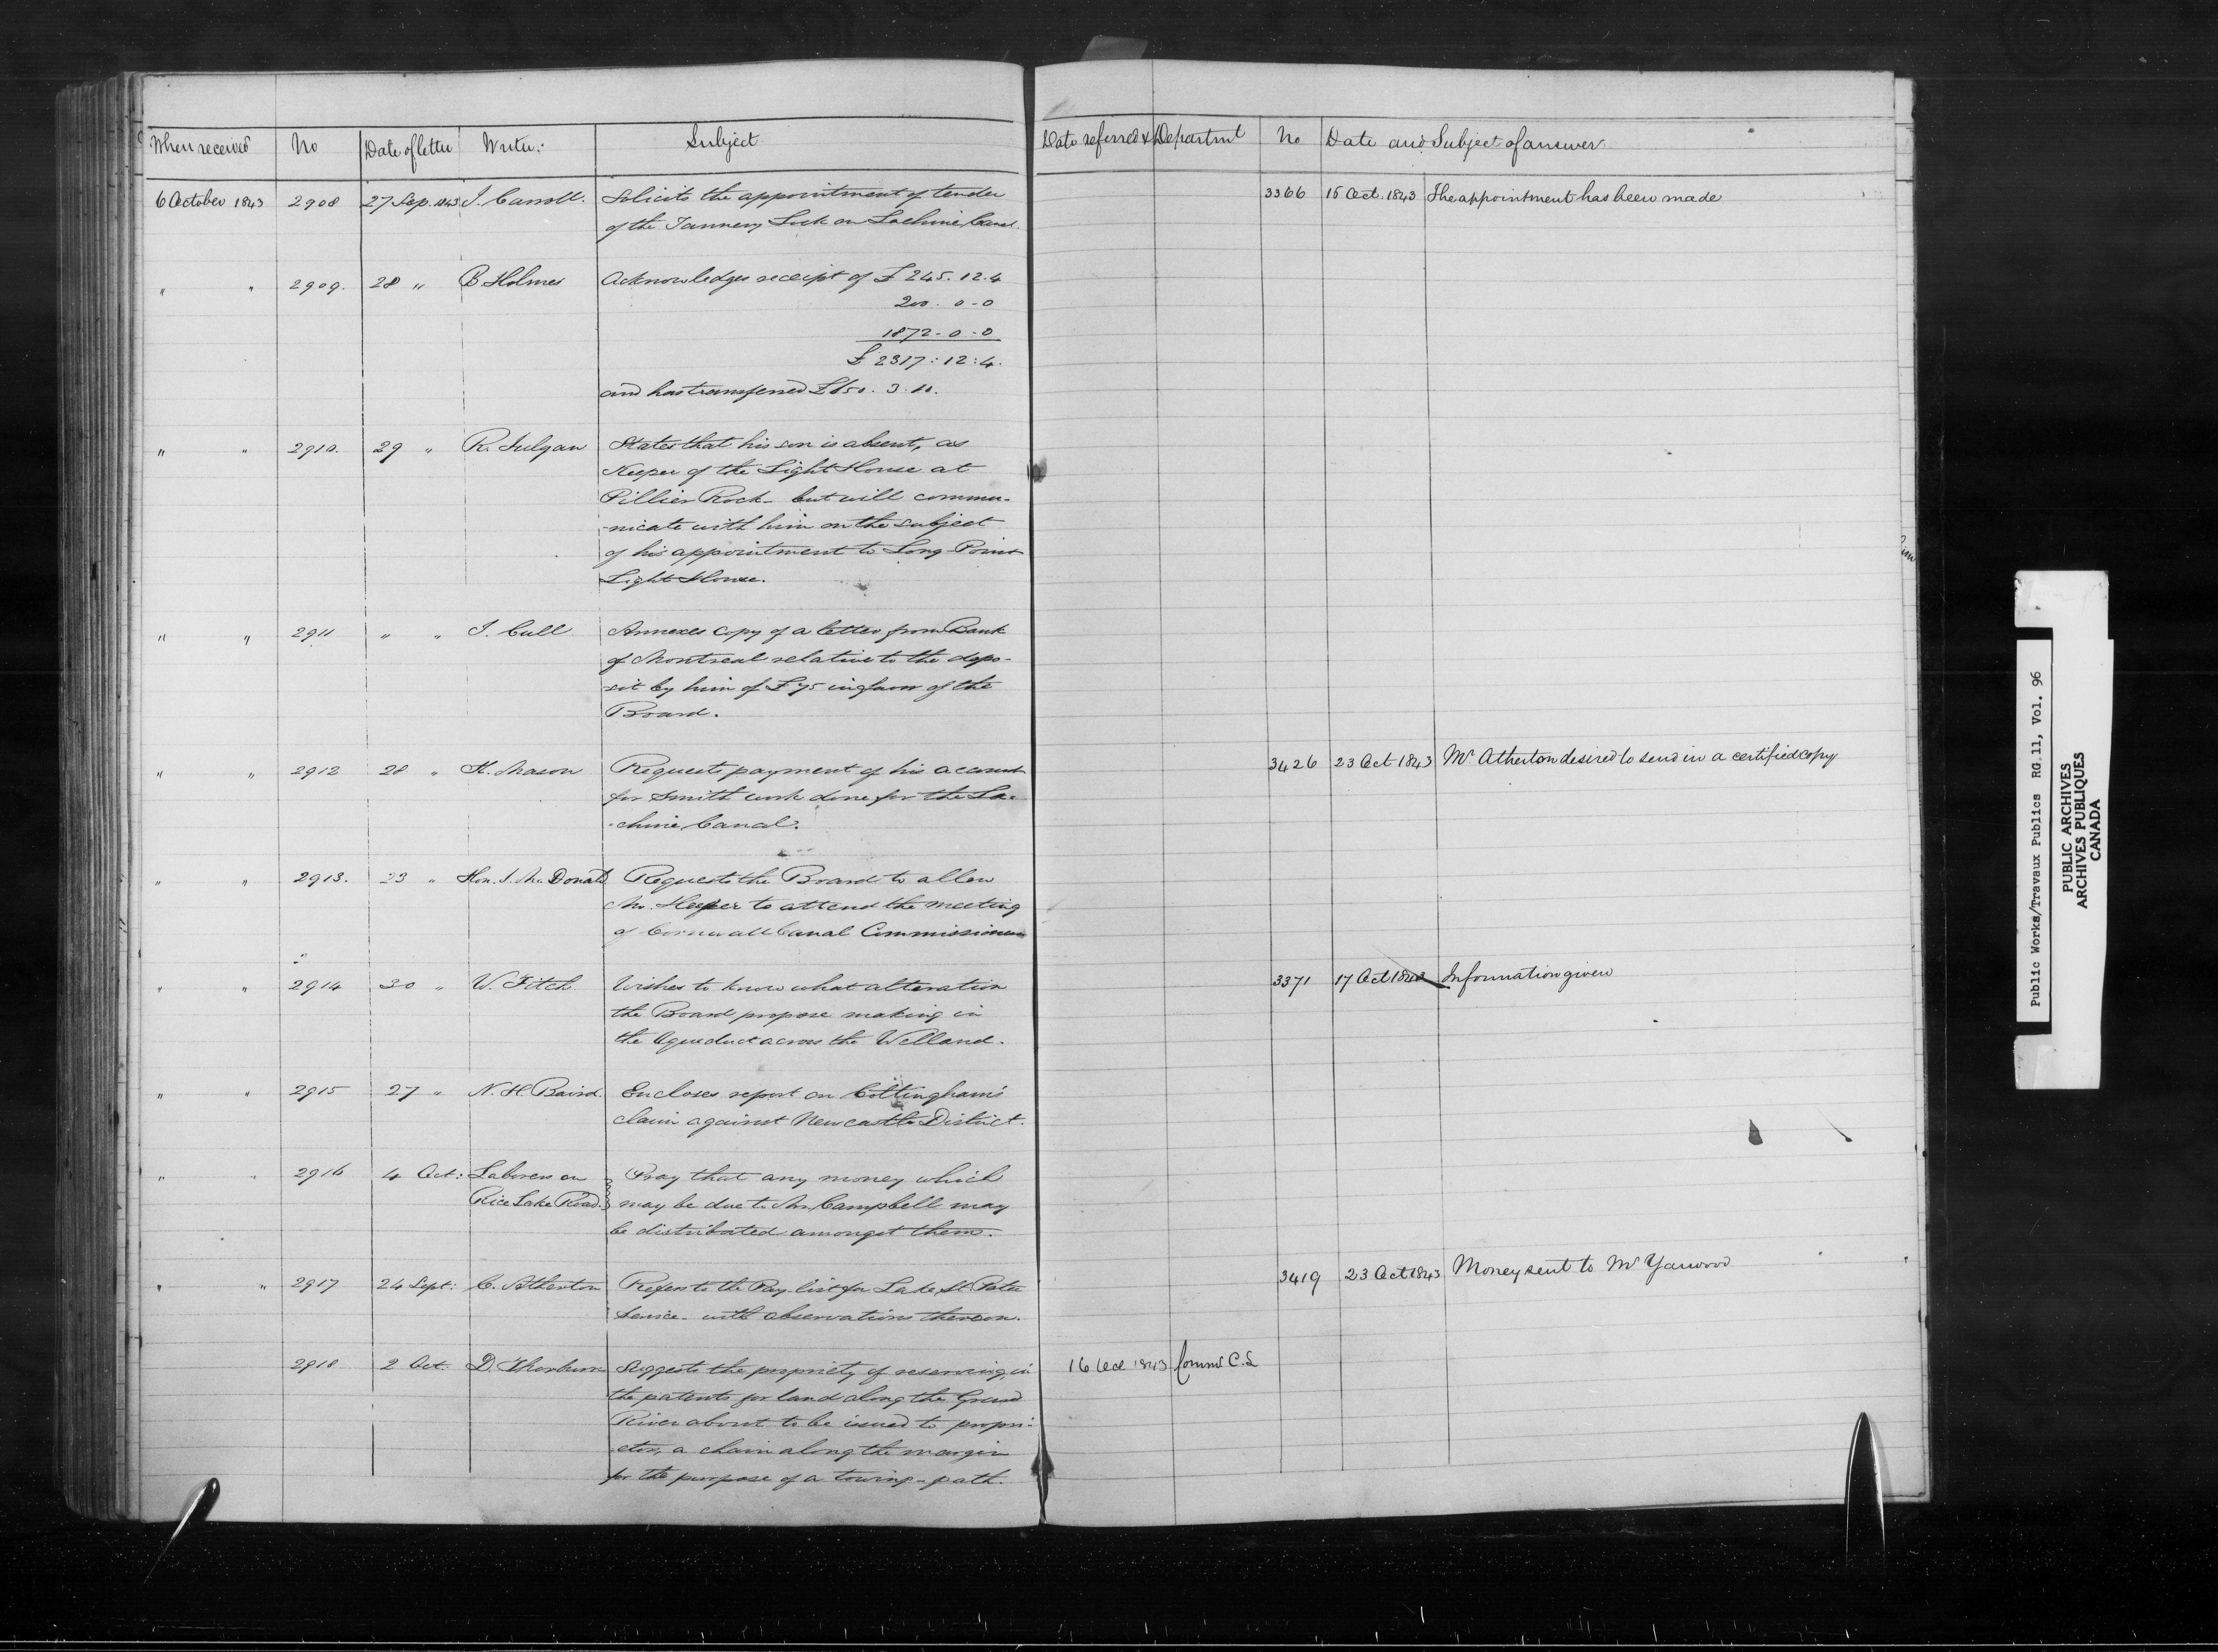 When received No Date of letter Writer: Subject Date referred & Departmt No Date and Subject of answer.
6 October 1843 2908 27 Sep. 1843 J. Carroll. Solicits the appointment of tender 3366 16 Oct. 1843 The appointment has been made
of the Tannery Lock on Lachine Canal.
" " 2909. 28 " B Holmes Acknowledges receipt of £245.12.4
200. 0-0
1872-0-0
£2317:12:4.
and has transferred
" " 2910. 29 " R. Julyan States that his son is absent, as
Keeper of the Light House at
Pillier Rock- but will commu-
-nicate with him on the subject
of his appointment to Long Point
Light House.
" " 2911 " " J. Cull Annexes copy of a letter from Bank
of Montreal relative to the depo-
-sit by him of £75 in favor of the
Board.
" " 2912 28 " K. Mason Requests payment of his account 3426 23 Oct 1843 Mr Atherton desired to send in a certified copy
for Smith work done for the La-
-chine Canal.
" " 2913. 23 " Hon. J. McDonald Requests the Board to allow
Mr. to attend the meeting
of Cornwall Canal Commissioners
" " 2914 30 " W. Fitch Wishes to know what alteration 3371 17 Oct 1843 Information given
the Board propose making in
the Aqueduct across the Welland.
" " 2915 27 " N. H. Baird. Encloses report on Cottingham's
claim against Newcastle District.
" " 2916 4 Oct: Laborers on Pray that any money which
Rice Lake Road. may be due to Mr. Campbell may
be distributed amongst them.
" " 2917 24 Sept: C. Atherton Refers to the Pay list for Lake St. Peter 3419 23 Oct 1843 Money sent to Mr Yarwood
Service- with observations thereon.
2918 2 Oct. D. Thorburn Suggests the propriety of reserving, in 16 Oct 1843 Commr C. L
the patents for land along the Grand
River about to be issued to propri-
-etors, a chain along the margin
for the purpose of a towing-path.
Public Works/Travaux Publics RG.11, Vol. 96
PUBLIC ARCHIVES
ARCHIVES PUBLIQUES
CANADA